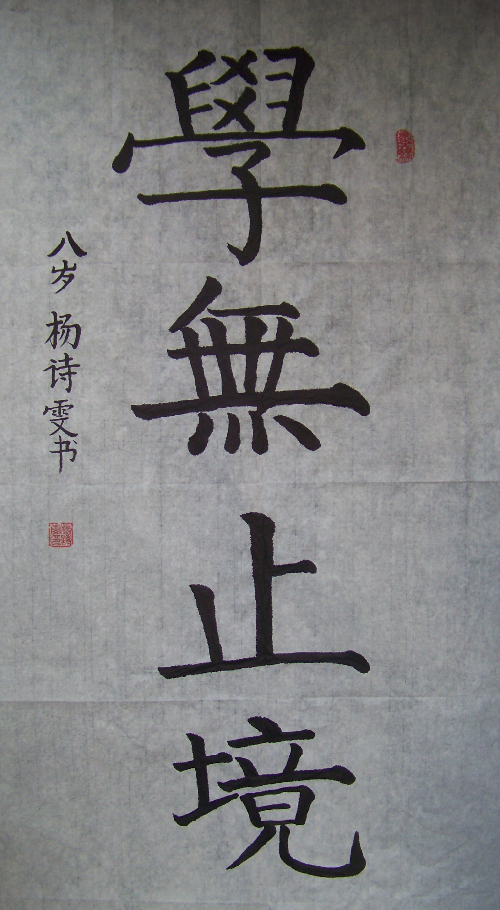 學無止境
八岁 杨诗雯书